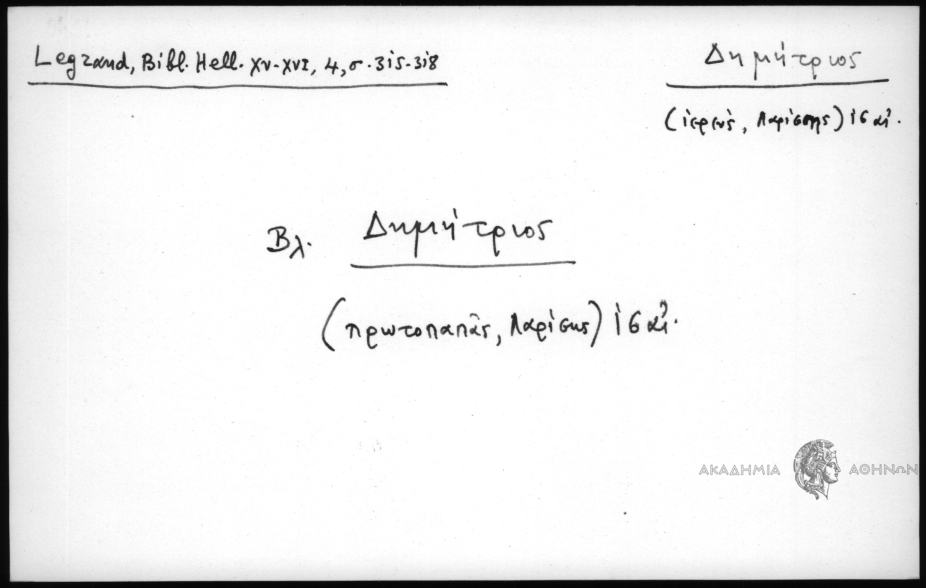 Legrand, Bibl. Hell. XV-XVI, 4, σ. 315-318
Δημήτριος
(ἱερεύς, Λαρίσης) 16 αἰ.
Βλ. Δημήτριος
(πρωτοπαπᾶς, Λαρίσης) 16 αἰ.
ΑΚΑΔΗΜΙΑ ΑΘΗΝΩΝ